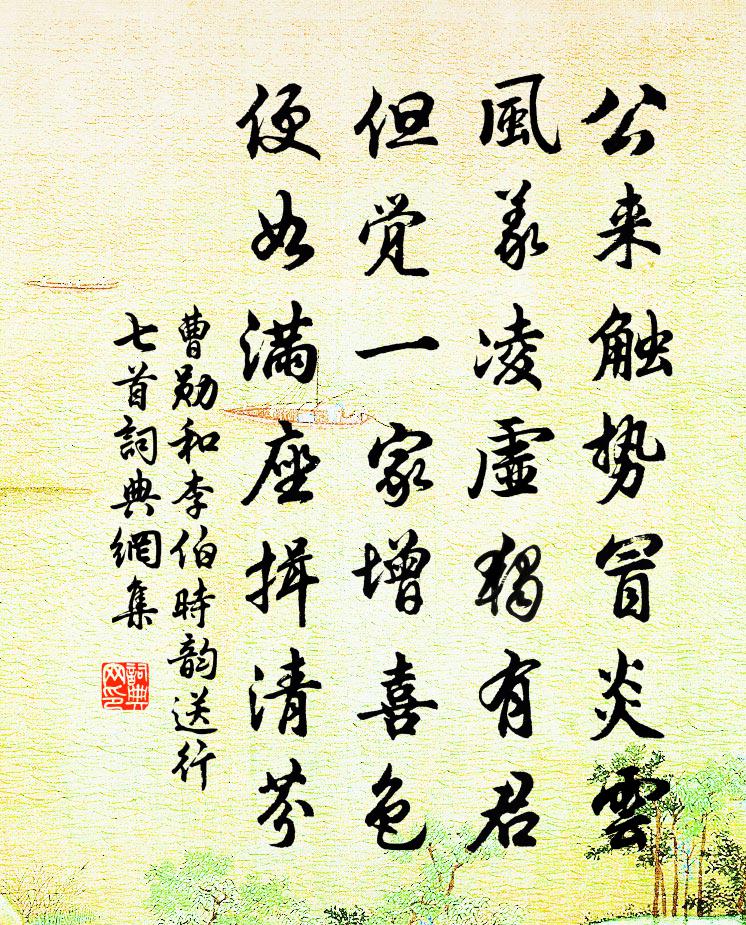 公来触势冒炎雲
風義凌虛独有君
但覚一家增喜色
便如满座揖清芬
曹勋和李伯時韵送行
七首詞典網集
詞典网印